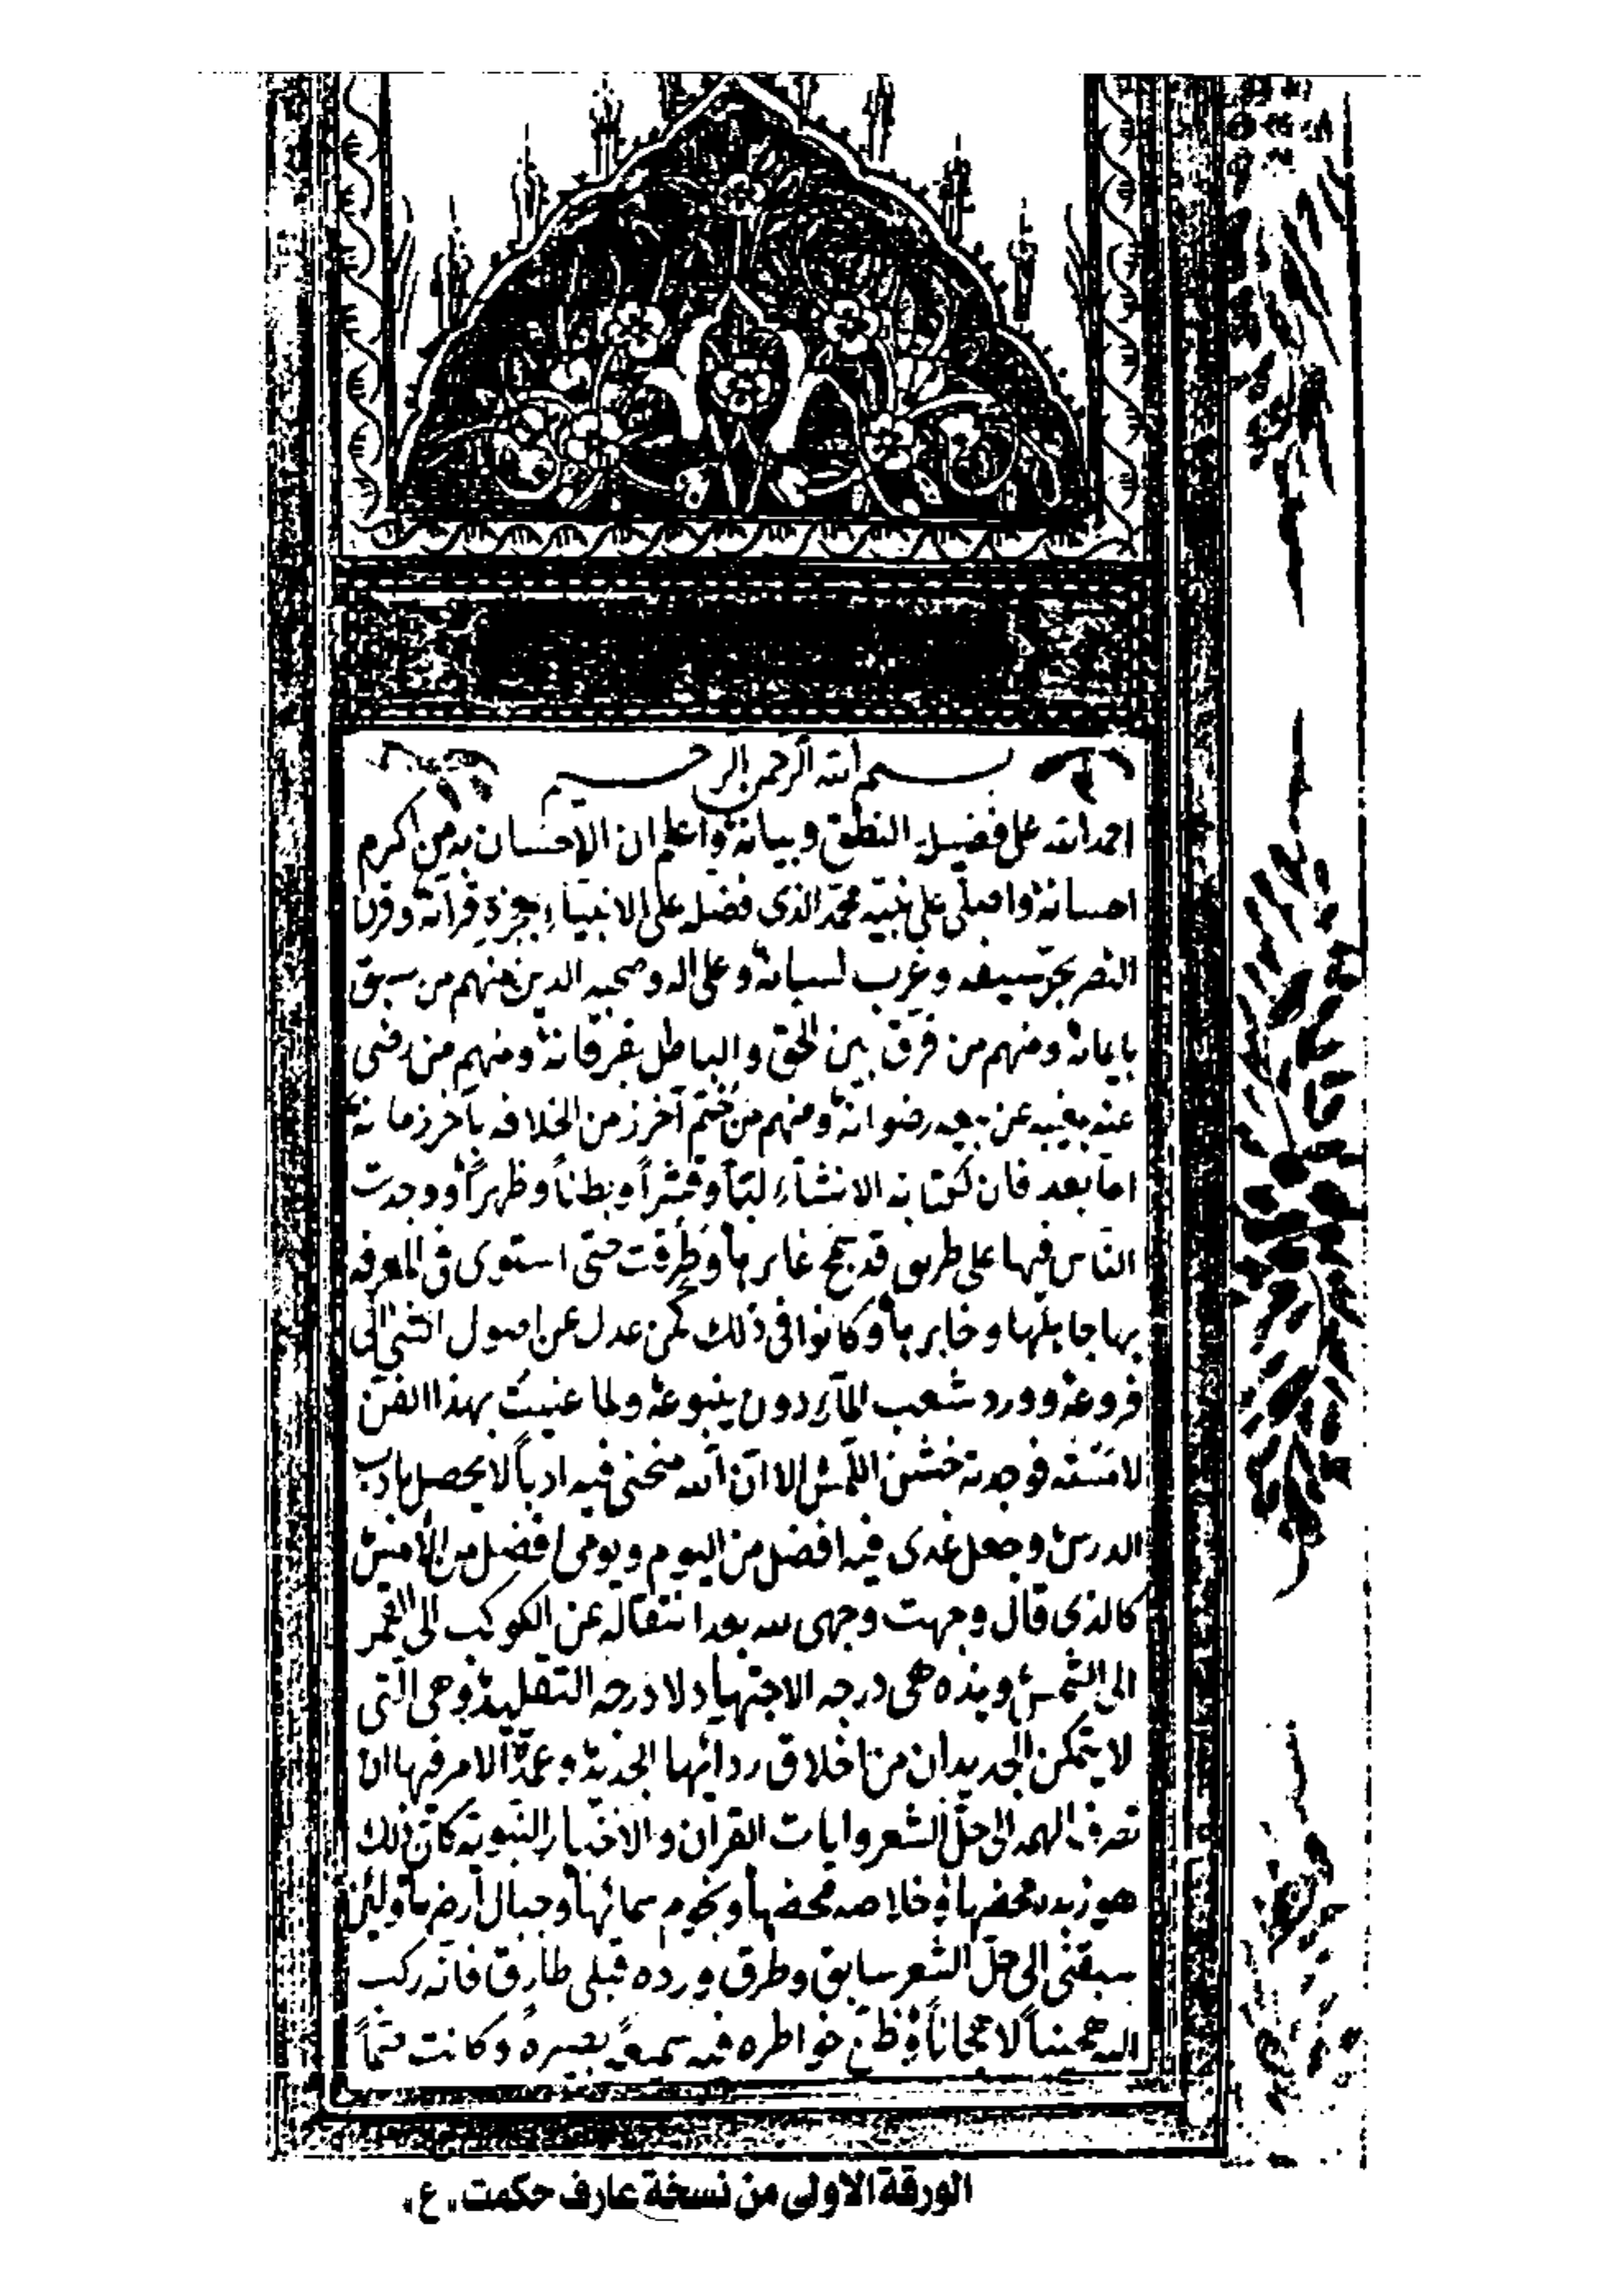 بسم الله الرحمن الرحيم
احمد الله على فضيلة النطق وبيانه واعلم ان الاحسان به من اكرم
احسانه واصلى على نبيه محمد الذى فضله على الانبياء بمعجزة قرآنه وقرن
النصر بحد سيفه وغرب لسانه وعلى اله وصحبه الذين منهم من سبق
بايمانه ومنهم من فرق بين الحق والباطل بفرقانه ومنهم من رضى
عنه بغيبه عن بيعه رضوانه ومنهم من ختم آخرز من الخلافه بآخر زمانه
اما بعد فان لكتابه الانشاء لبا وقشراً وبطناً وظهراً ووجدت
الناس فيها على طريق قد نهج غابرها وطرقت حتى استوى فى المعرفه
بها جاهلها وخابرها وكانوا فى ذلك كمن عدل عن اصول الشئ الى
فروعه وورد شعب الماء دون ينبوعه ولما عنيت بهذا الفن
لامسته فوجدته خشن اللمس الا ان الله منحنى فيه ادباً لا يحصل بادب
الدرس وجعل غدى فيه افضل من اليوم ويومى افضل من الامس
كالذى قال وجهت وجهى لله بعد انتقاله عن الكوكب الى القمر
الى الشمس وهذه هى درجه الاجتهاد لا درجه التقليد وهى التى
لا يتمكن الجديدان من اخلاق ردائها الجديد وعمدة الامر فيها ان
تصرف الهمه الى حل الشعر وايات القران والاخبار النبويه كان ذلك
هو زبده محضها وخلاصه محضها ونجوم سمائها وجبال ارضها ولئن
سبقنى الى حل الشعر سابق وطرق ورده قبلى طارق فانه ركب
اليه هجيناً لا هجاناً وظن خواطره فيه سميعة بصيره وكانت صماً
الورقة الاولى من نسخة عارف حكمت "ع"